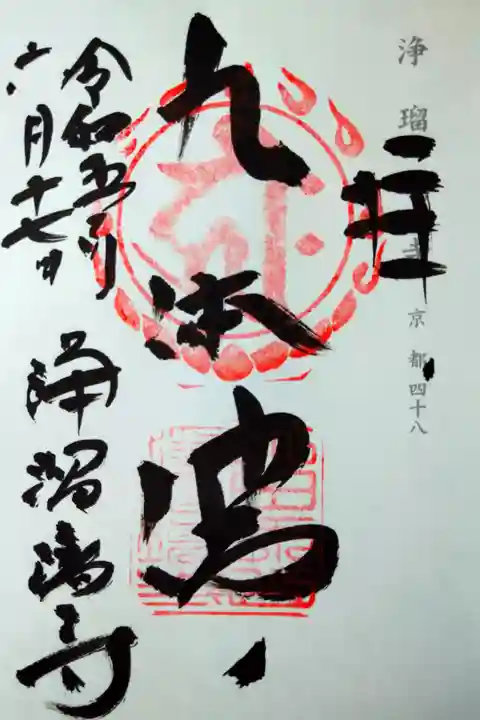 浄瑠璃寺 京都四十八
奉拝
九体佛
令和五年
六月十七日
浄瑠璃寺